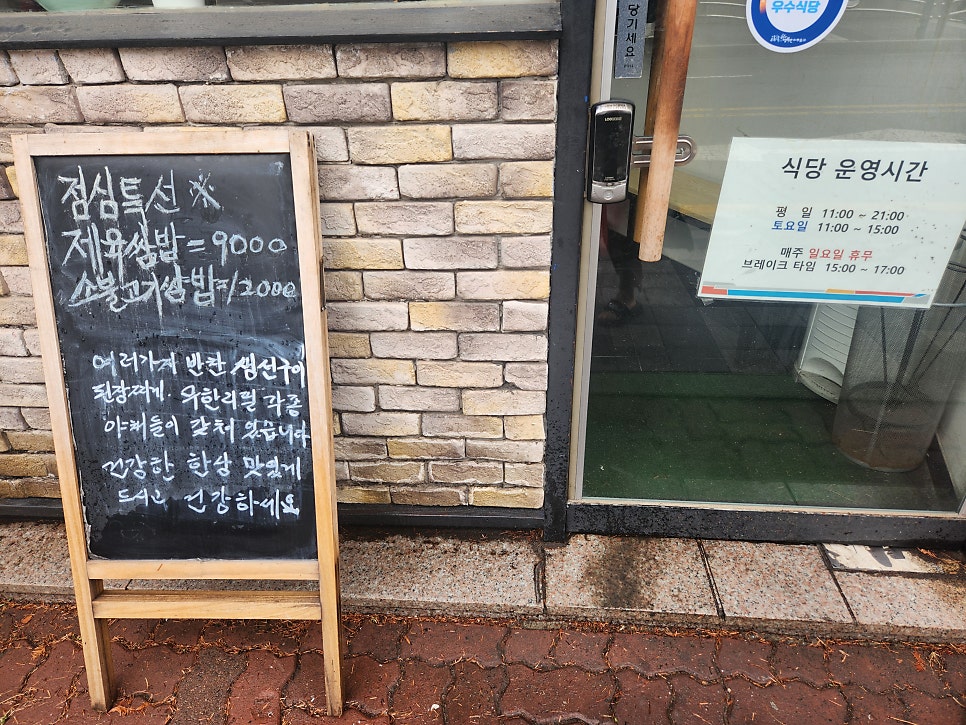 점심특선 ※
제육쌈밥 = 9000
소불고기쌈밥 = 12000
여러가지 반찬 생선구이
된장찌개. 무한리필 각종
야채들이 갖춰 있습니다
건강한 한상 맛있게
드시고 건강하세요
당기세요
우수식당
식당 운영시간
평 일 11:00 ~ 21:00
토요일 11:00 ~ 15:00
매주 일요일 휴무
브레이크 타임 15:00 ~ 17:00